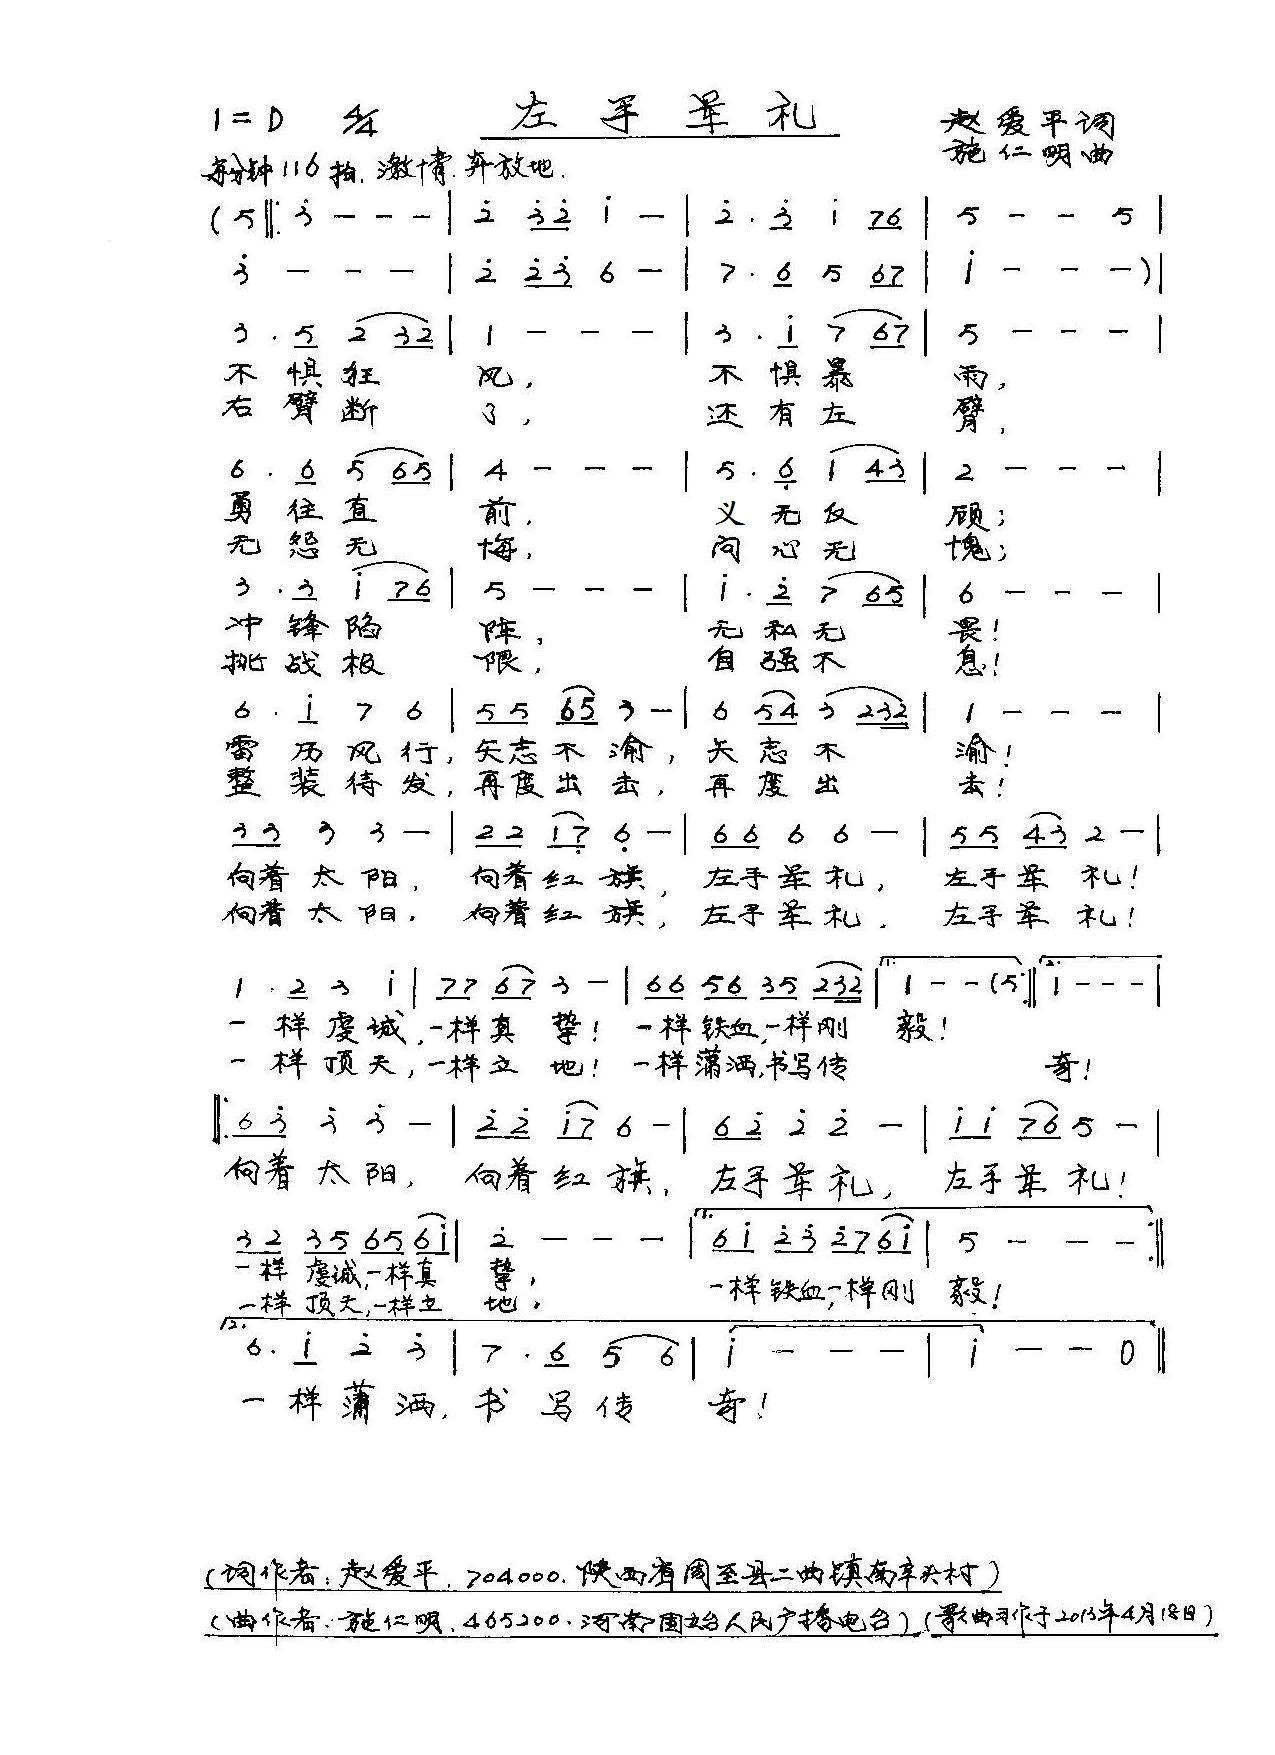 1=D 4/4 左手军礼 赵爱平词
施仁明曲
每分钟116拍. 激情.奔放地.
(5‖: 3̇ - - - | 2̇ 3̇2̇ 1̇ - | 2̇ . 3̇ 1̇ 76 | 5 - - 5 |
3̇ - - - | 2̇ 2̇3̇ 6 - | 7 . 6 5 67 | 1̇ - - - )|
3 . 5 2 32 | 1 - - - | 3 . 1̇ 7 67 | 5 - - - |
不惧狂风, 不惧暴雨,
右臂断了, 还有左臂,
6 . 6 5 65 | 4 - - - | 5 . 6̣ 1 43 | 2 - - - |
勇往直前, 义无反顾;
无怨无悔, 问心无愧;
3 . 3 1̇ 76 | 5 - - - | 1̇ . 2̇ 7 65 | 6 - - - |
冲锋陷阵, 无私无畏!
挑战极限, 自强不息!
6 . 1̇ 7 6 | 55 65 3 - | 6 54 3 232 | 1 - - - |
雷厉风行, 矢志不渝, 矢志不渝!
整装待发, 再度出击, 再度出击!
33 3 3 - | 22 17̣ 6̣ - | 66 6 6 - | 55 43 2 - |
向着太阳, 向着红旗, 左手军礼, 左手军礼!
向着太阳, 向着红旗, 左手军礼, 左手军礼!
1 . 2 3 1̇ | 77 67 3 - | 66 56 35 232 | 1. 1 - - (5 :‖ 2. 1 - - - |
一样虔诚, 一样真挚! 一样铁血, 一样刚毅!
一样顶天, 一样立地! 一样潇洒, 书写传奇!
‖: 63̇ 3̇ 3̇ - | 2̇2̇ 1̇7 6 - | 62̇ 2̇ 2̇ - | 1̇1̇ 76 5 - |
向着太阳, 向着红旗, 左手军礼, 左手军礼!
32 35 65 61̇ | 2̇ - - - | 1. 61̇ 2̇3̇ 2̇7 61̇ | 5 - - - :‖
一样虔诚, 一样真挚, 一样铁血, 一样刚毅!
一样顶天, 一样立地,
2. 6 . 1̇ 2̇ 3̇ | 7 . 6 5 6 | 1̇ - - - | 1̇ - - 0 ‖
一样潇洒, 书写传奇!
(词作者: 赵爱平, 704000. 陕西省周至县二曲镇南辛头村)
(曲作者: 施仁明, 465200. 河南固始人民广播电台) (歌曲习作于2013年4月18日)